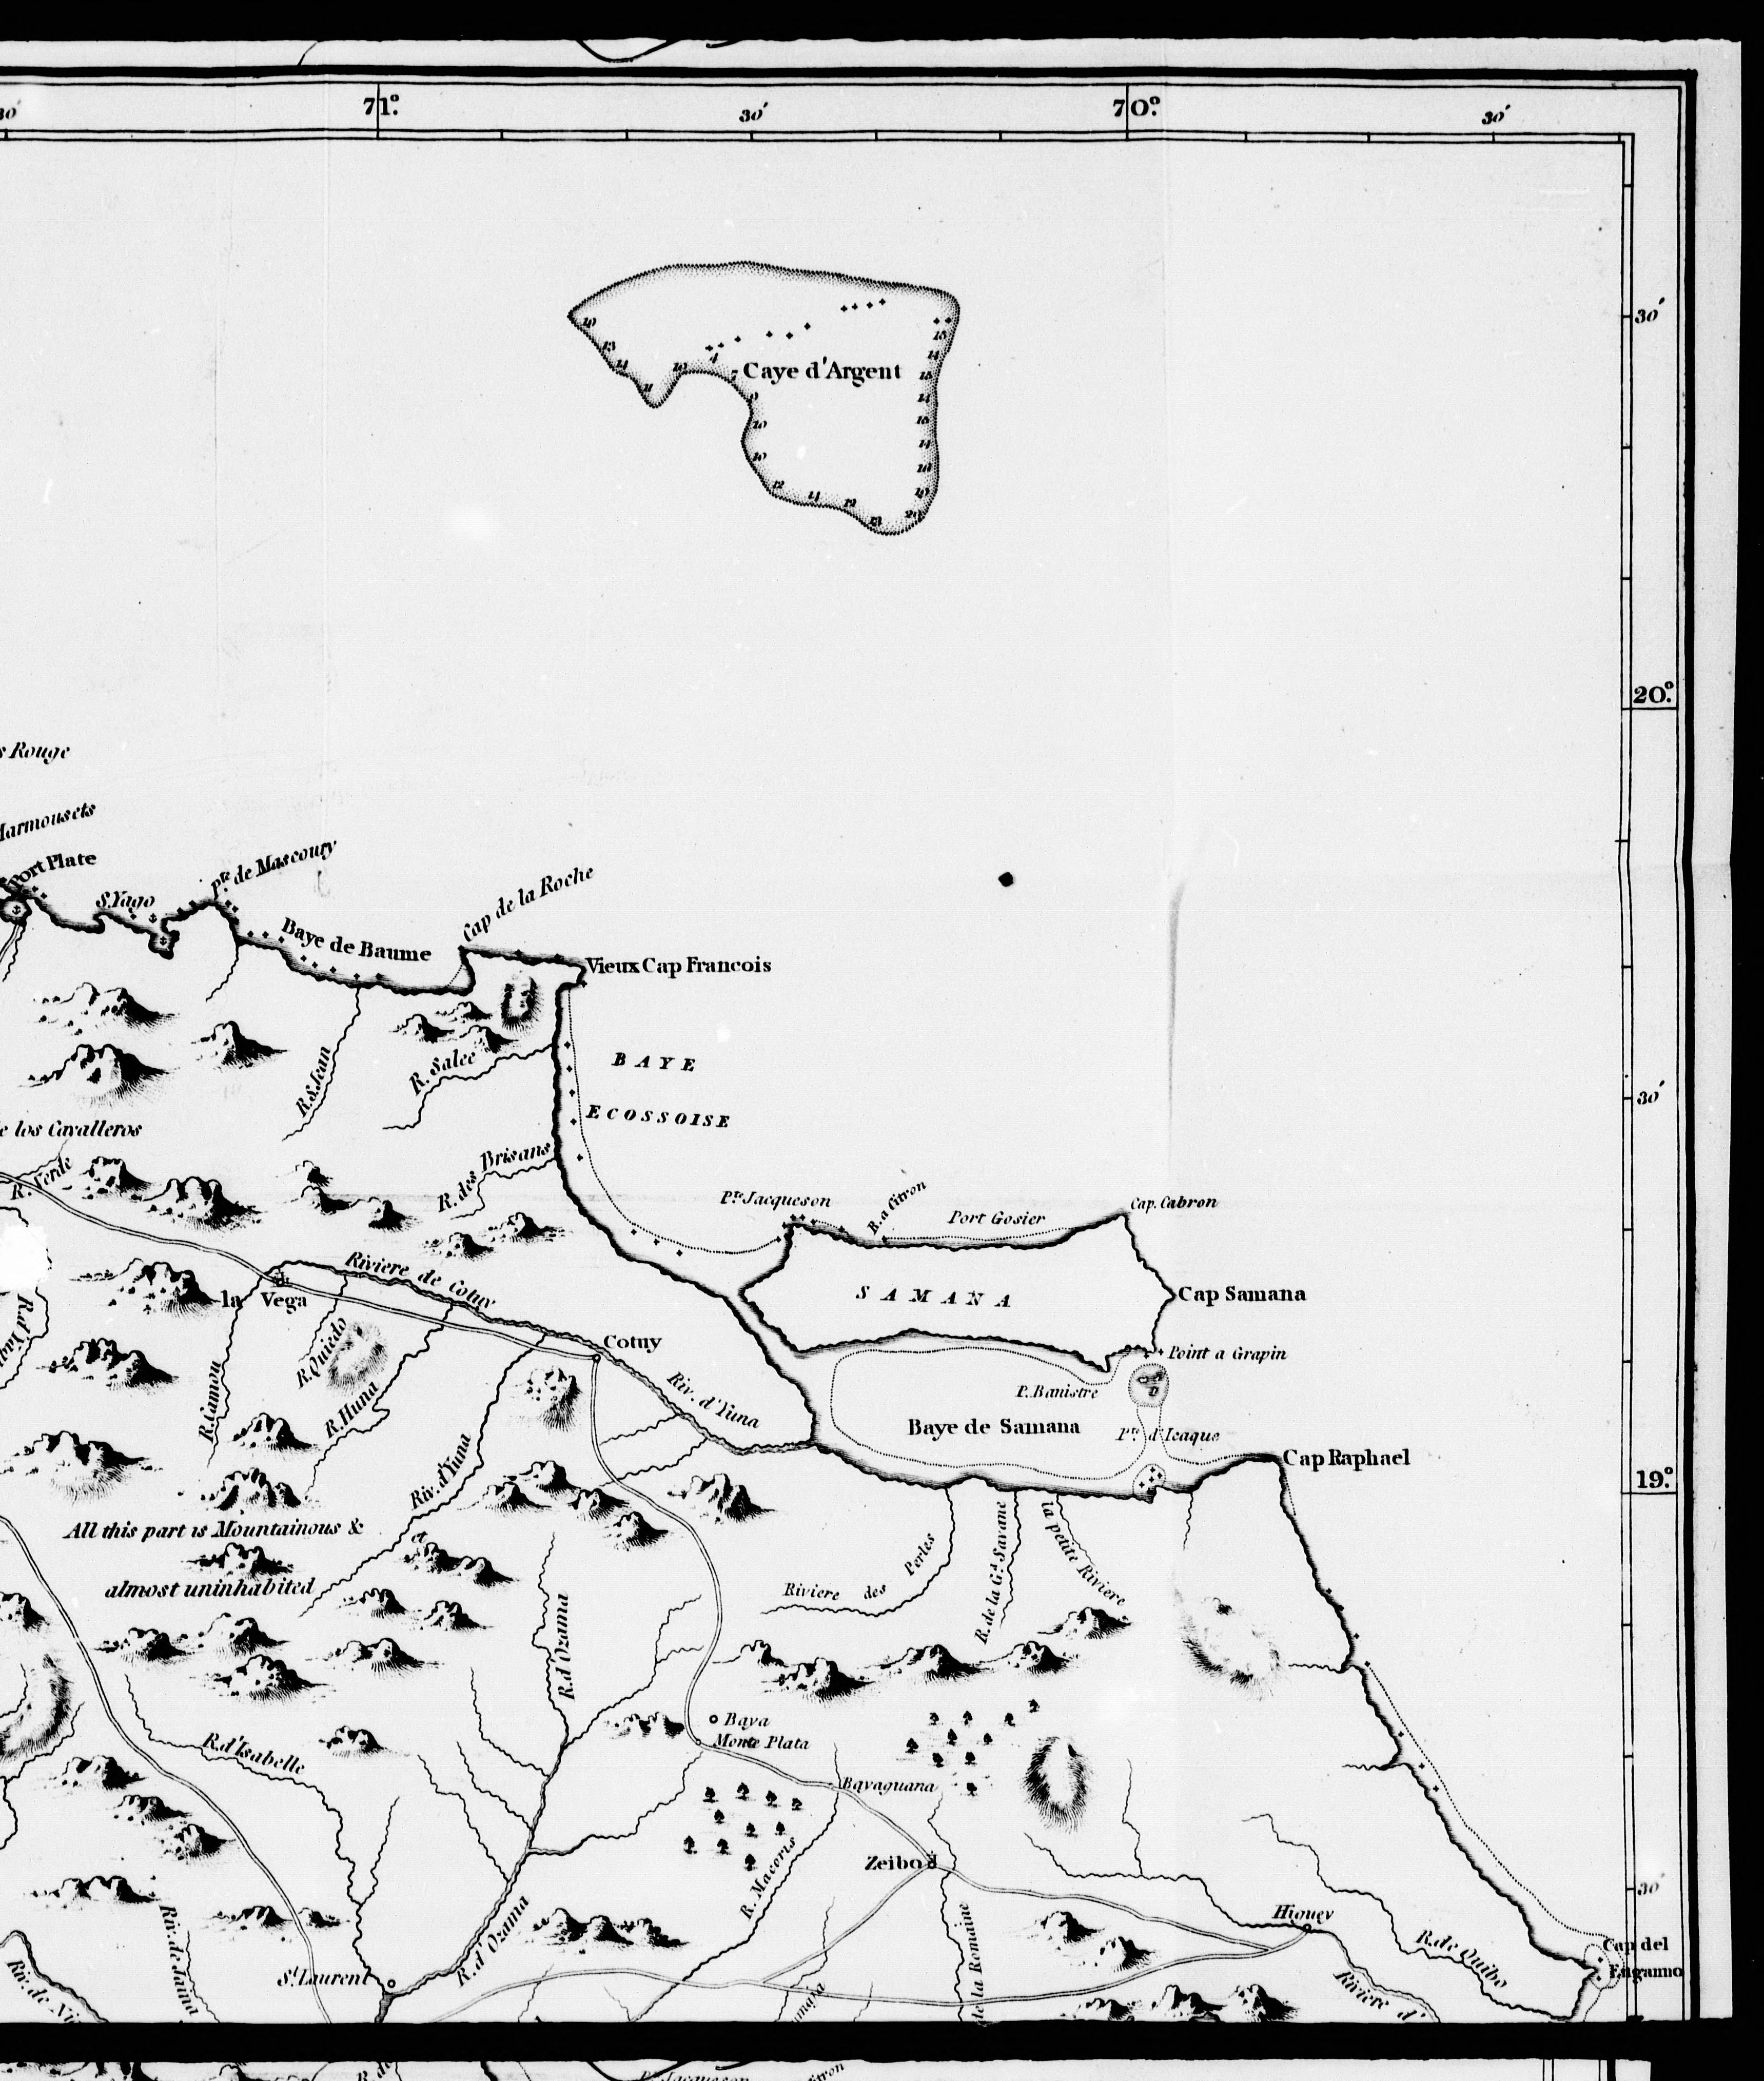 30'
71°
30'
70°
30'
30'
10
13
14
11
10
4
7
Caye d'Argent
9
10
10
12
14
12
13
20
19
18
14
15
14
15
14
15
20°
Rouge
Marmousets
Port Plate
S. Yago
Pte de Mascoury
Baye de Baume
Cap de la Roche
Vieux Cap Francois
R. S. Jean
R. Salee
BAYE
ECOSSOISE
30'
e los Cavalleros
R. Verde
R. des Brisans
Pte Jacqueson
R. a Citron
Port Gosier
Cap. Cabron
Riviere de Cotuy
la Vega
SAMANA
Cap Samana
Cotuy
Point a Grapin
R. Camou
R. Oviedo
R. Huna
Riv. d'Yuna
P. Banistre
Baye de Samana
Pte d'Icaque
Cap Raphael
Riv. d'Yuna
19°
All this part is Mountainous &
almost uninhabited
Riviere des Perles
R. de la Gd Savane
la petite Riviere
R. d'Ozama
Baya
Monte Plata
R. d'Isabelle
Bayaguana
R. Macoris
Zeibo
30'
Higuey
R. de Quibo
Cap del
Enganno
Riv. de Jaina
St. Laurent
R. d'Ozama
de la Romaine
Riviere d'
Riv. de Ni
R. de
Jacqueson
itron